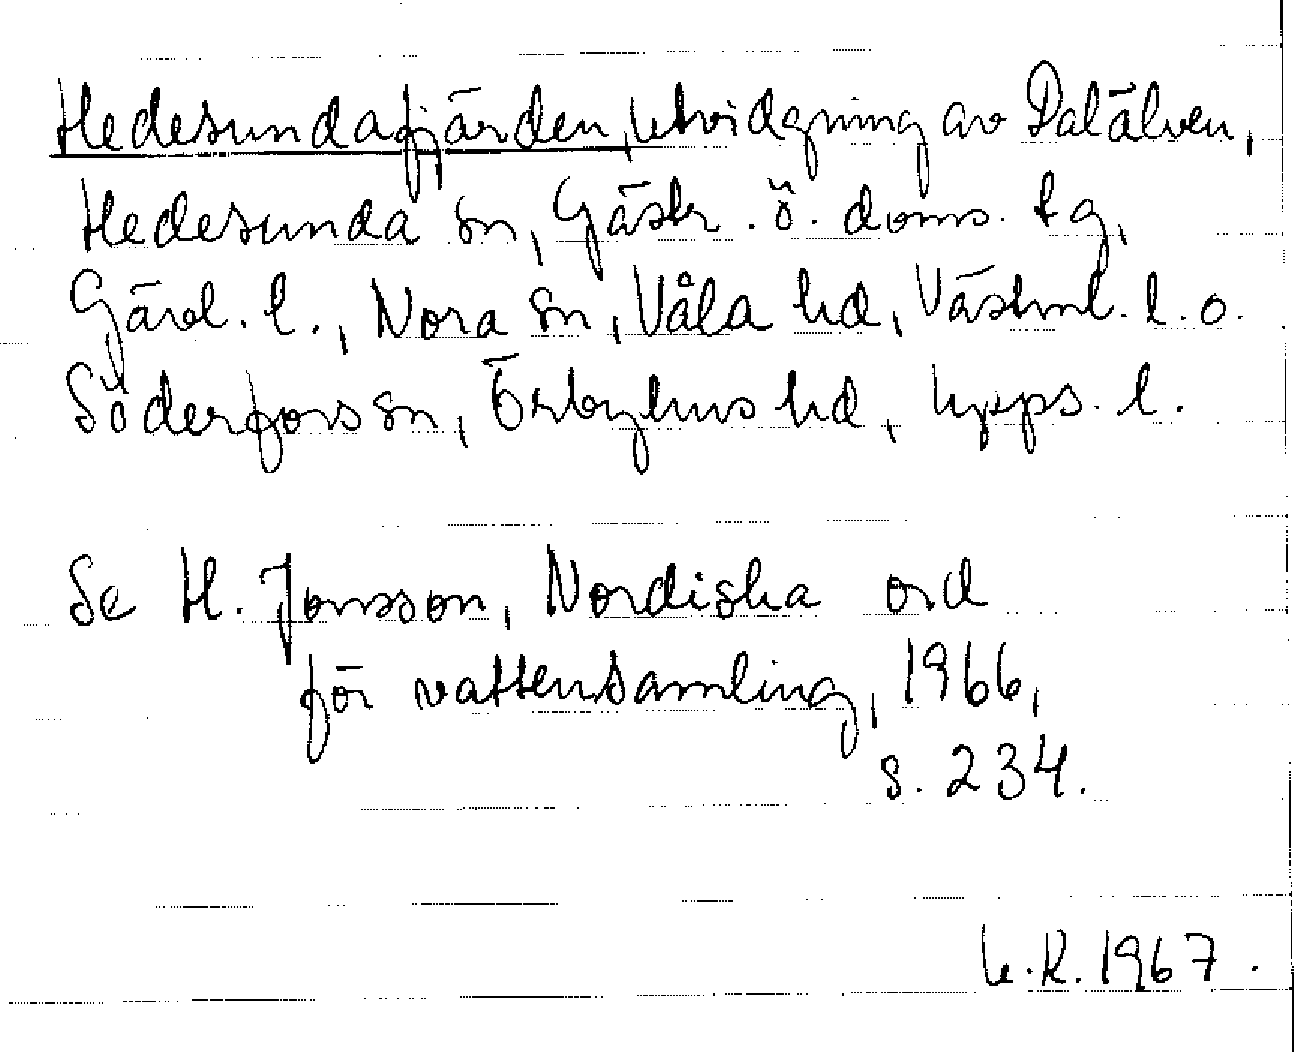 Hedesundafjärden, utvidgning av Dalälven,
Hedesunda sn, Gästr. ö. doms. tg,
Gävl. l., Nora sn, Våla hd, Västml. l. o.
Söderfors sn, Örbyhus hd, Upps. l.
Se H. Jonsson, Nordiska ord
för vattensamling, 1966,
s. 234.
U.R. 1967.